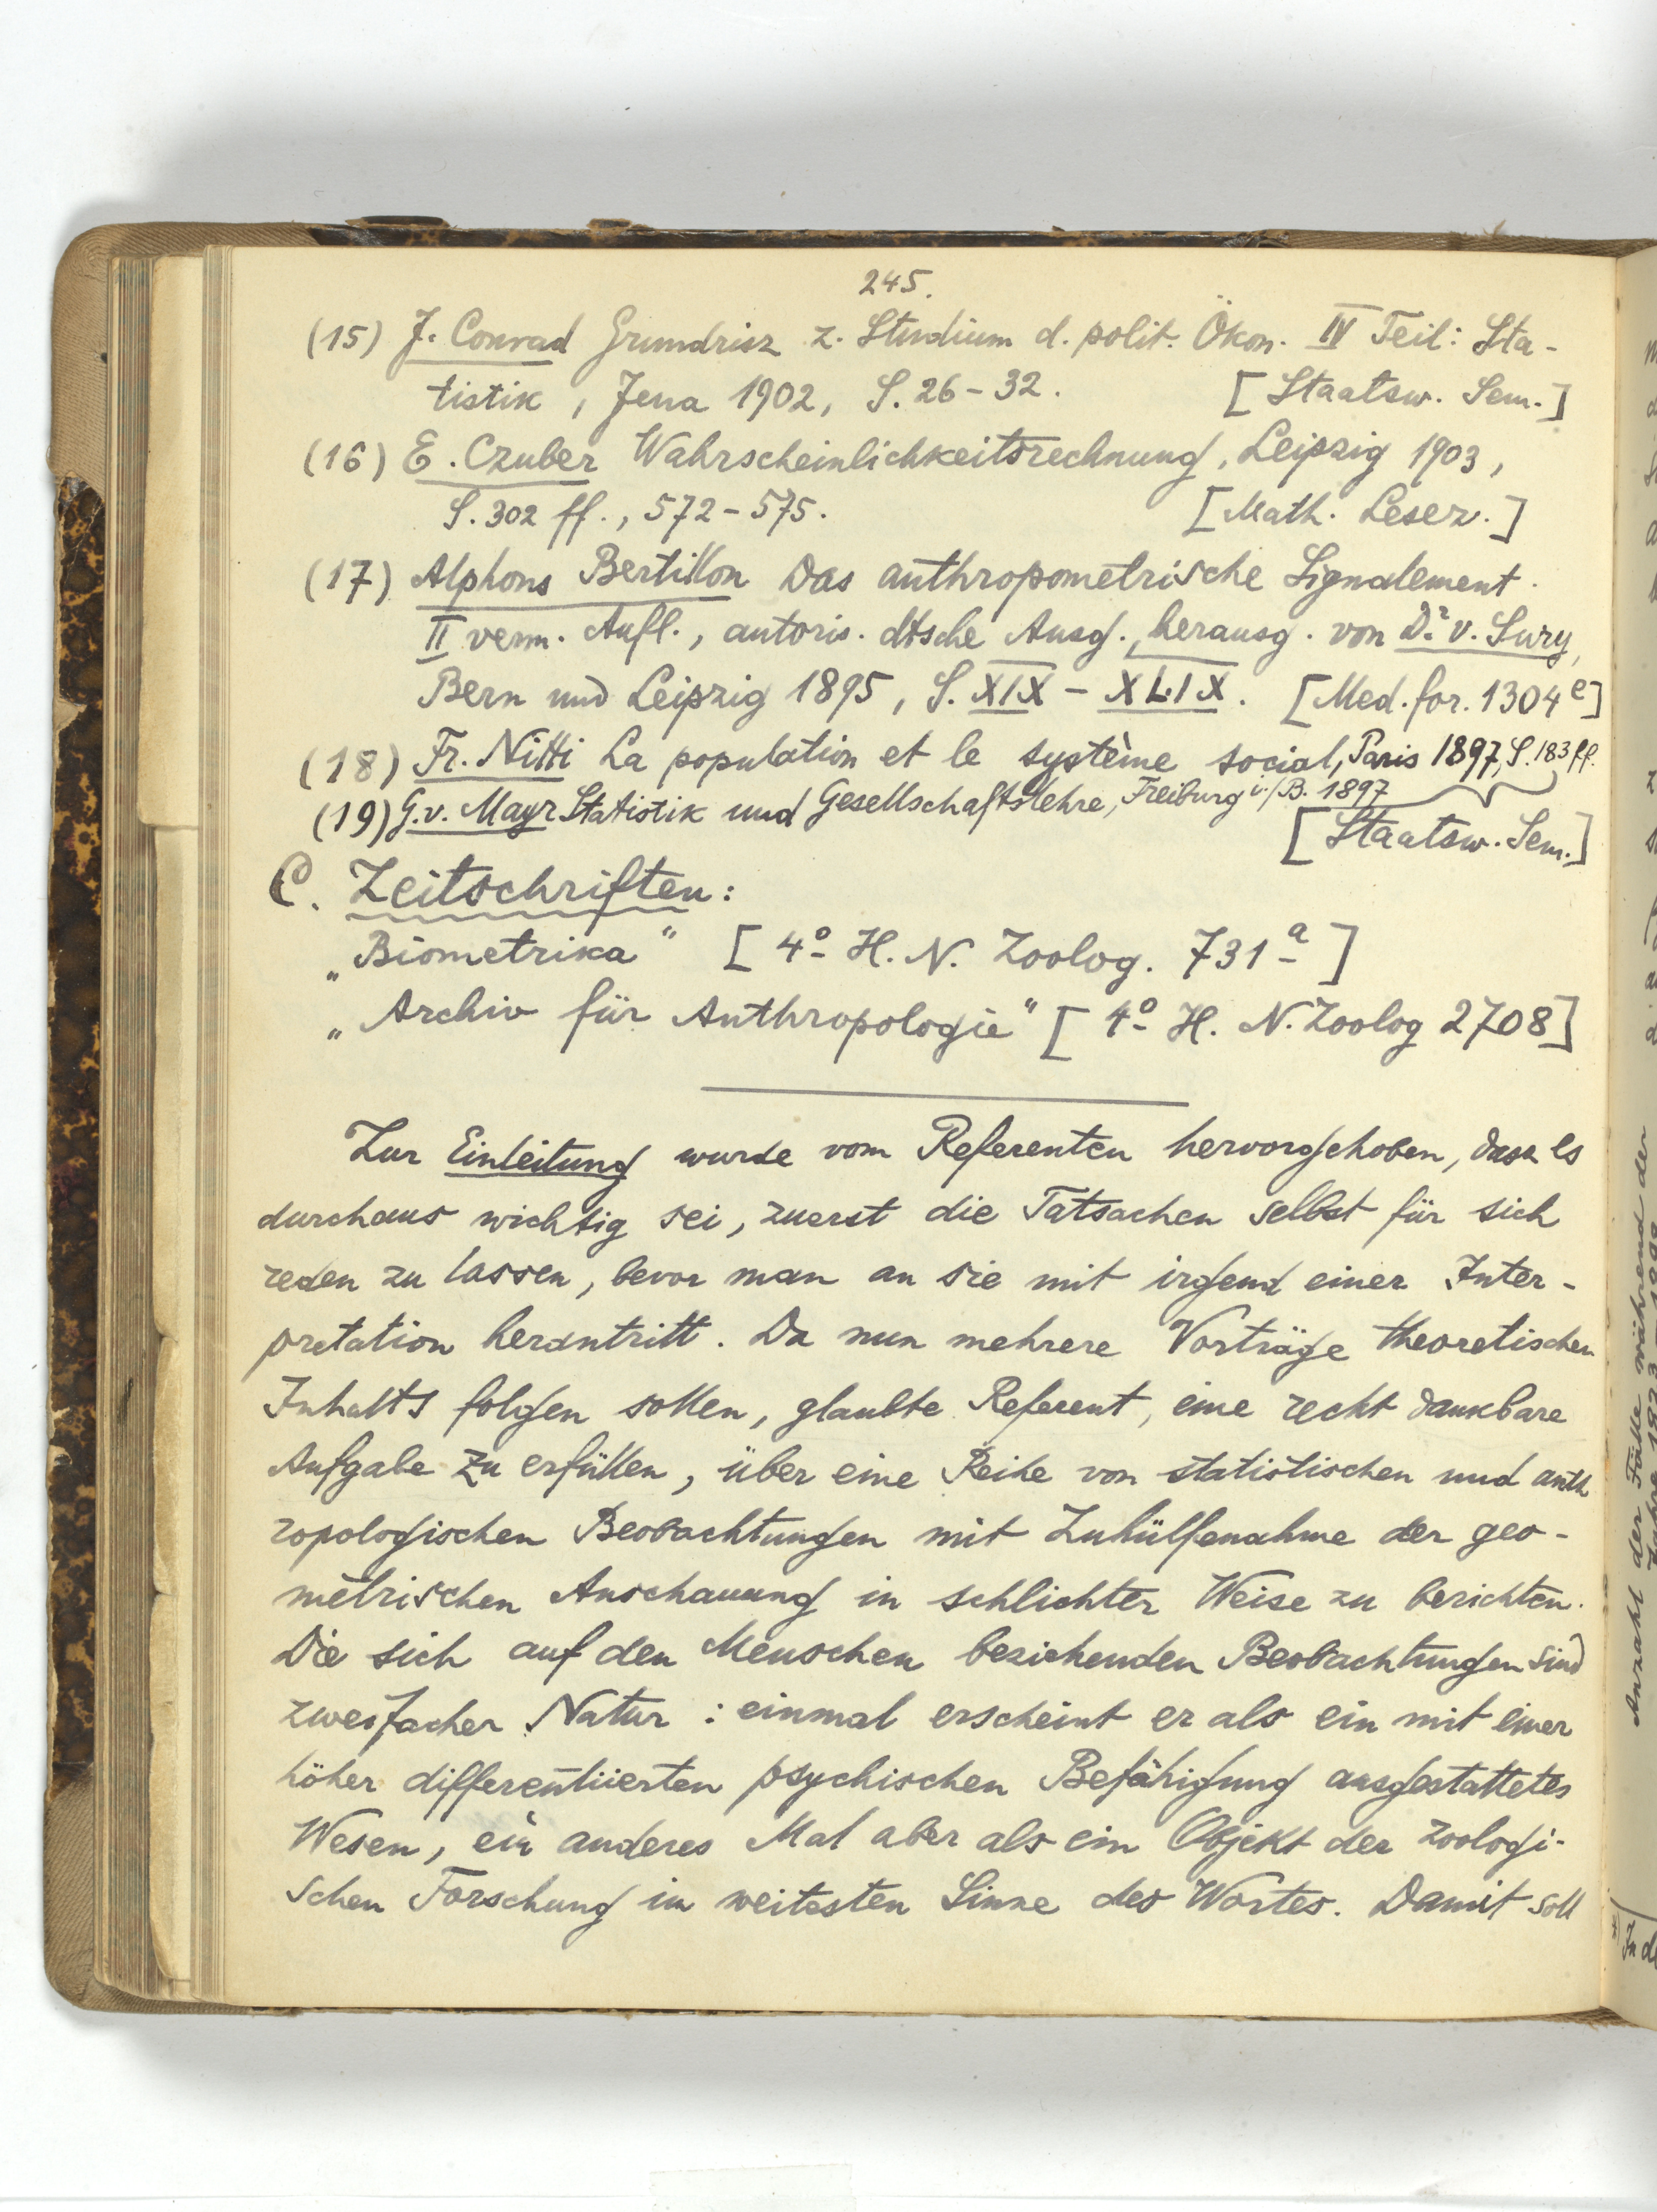 245.
(15) J. Conrad Grundrisz z. Studium d. polit. Ökon. IV Teil: Sta-
tistik, Jena 1902, S. 26-32. [Staatsw. Sem.]
(16) E. Czuber Wahrscheinlichkeitsrechnung, Leipzig 1903,
S. 302 ff., 572-575. [Math. Lesez.]
(17) Alphons Bertillon Das anthropometrische Signalement.
II verm. Aufl., autoris. dtsche Ausg., herausg. von Dr. v. Sury,
Bern und Leipzig 1895, S. XIX - XLIX. [Med. for. 1304e]
(18) Fr. Nitti La population et le système social, Paris 1897, S. 183 ff.
(19) G. v. Mayr Statistik und Gesellschaftslehre, Freiburg i./B. 1897
[Staatsw. Sem.]
C. Zeitschriften:
„Biometrika“ [4o H. N. Zoolog. 731a]
„Archiv für Anthropologie“ [4o H. N. Zoolog 2708]
Zur Einleitung wurde vom Referenten hervorgehoben, dasz es
durchaus wichtig sei, zuerst die Tatsachen selbst für sich
reden zu lassen, bevor man an sie mit irgend einer Inter-
pretation herantritt. Da nun mehrere Vorträge theoretischen
Inhalts folgen sollen, glaubte Referent, eine recht dankbare
Aufgabe zu erfüllen, über eine Reihe von statistischen und anth
ropologischen Beobachtungen mit Zuhülfenahme der geo-
metrischen Anschauung in schlichter Weise zu berichten.
Die sich auf den Menschen beziehenden Beobachtungen sind
zweifacher Natur: einmal erscheint er als ein mit einer
höher differentiierten psychischen Befähigung ausgestattetes
Wesen, ein anderes Mal aber als ein Objekt der zoologi-
schen Forschung im weitesten Sinne des Wortes. Damit soll
Anzahl der Fälle während der